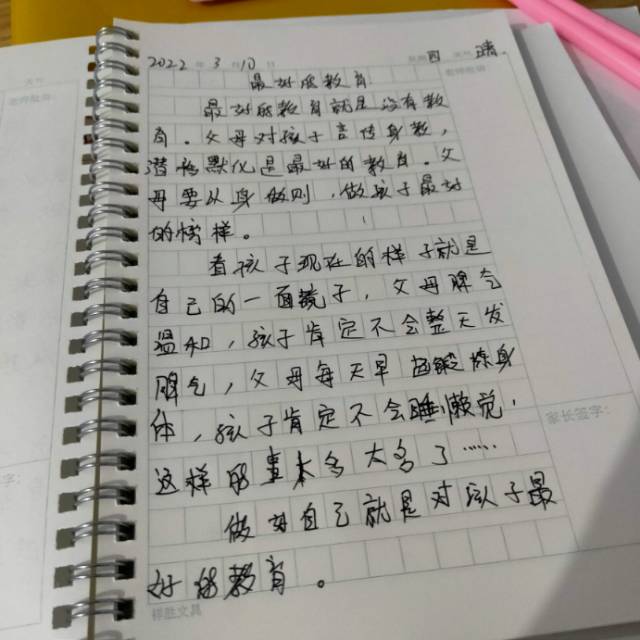 2022年3月10日 星期四 天气 晴
最好的教育
最好的教育就是没有教
育。父母对孩子言传身教,
潜移默化是最好的教育。父
母要以身做则,做孩子最好
的榜样。
看孩子现在的样子就是
自己的一面镜子,父母脾气
温和,孩子肯定不会整天发
脾气,父母每天早起锻炼身
体,孩子肯定不会睡懒觉,
这样的事太多太多了……
做好自己就是对孩子最
好的教育。
老师批语:
家长签字:
祥胜文具